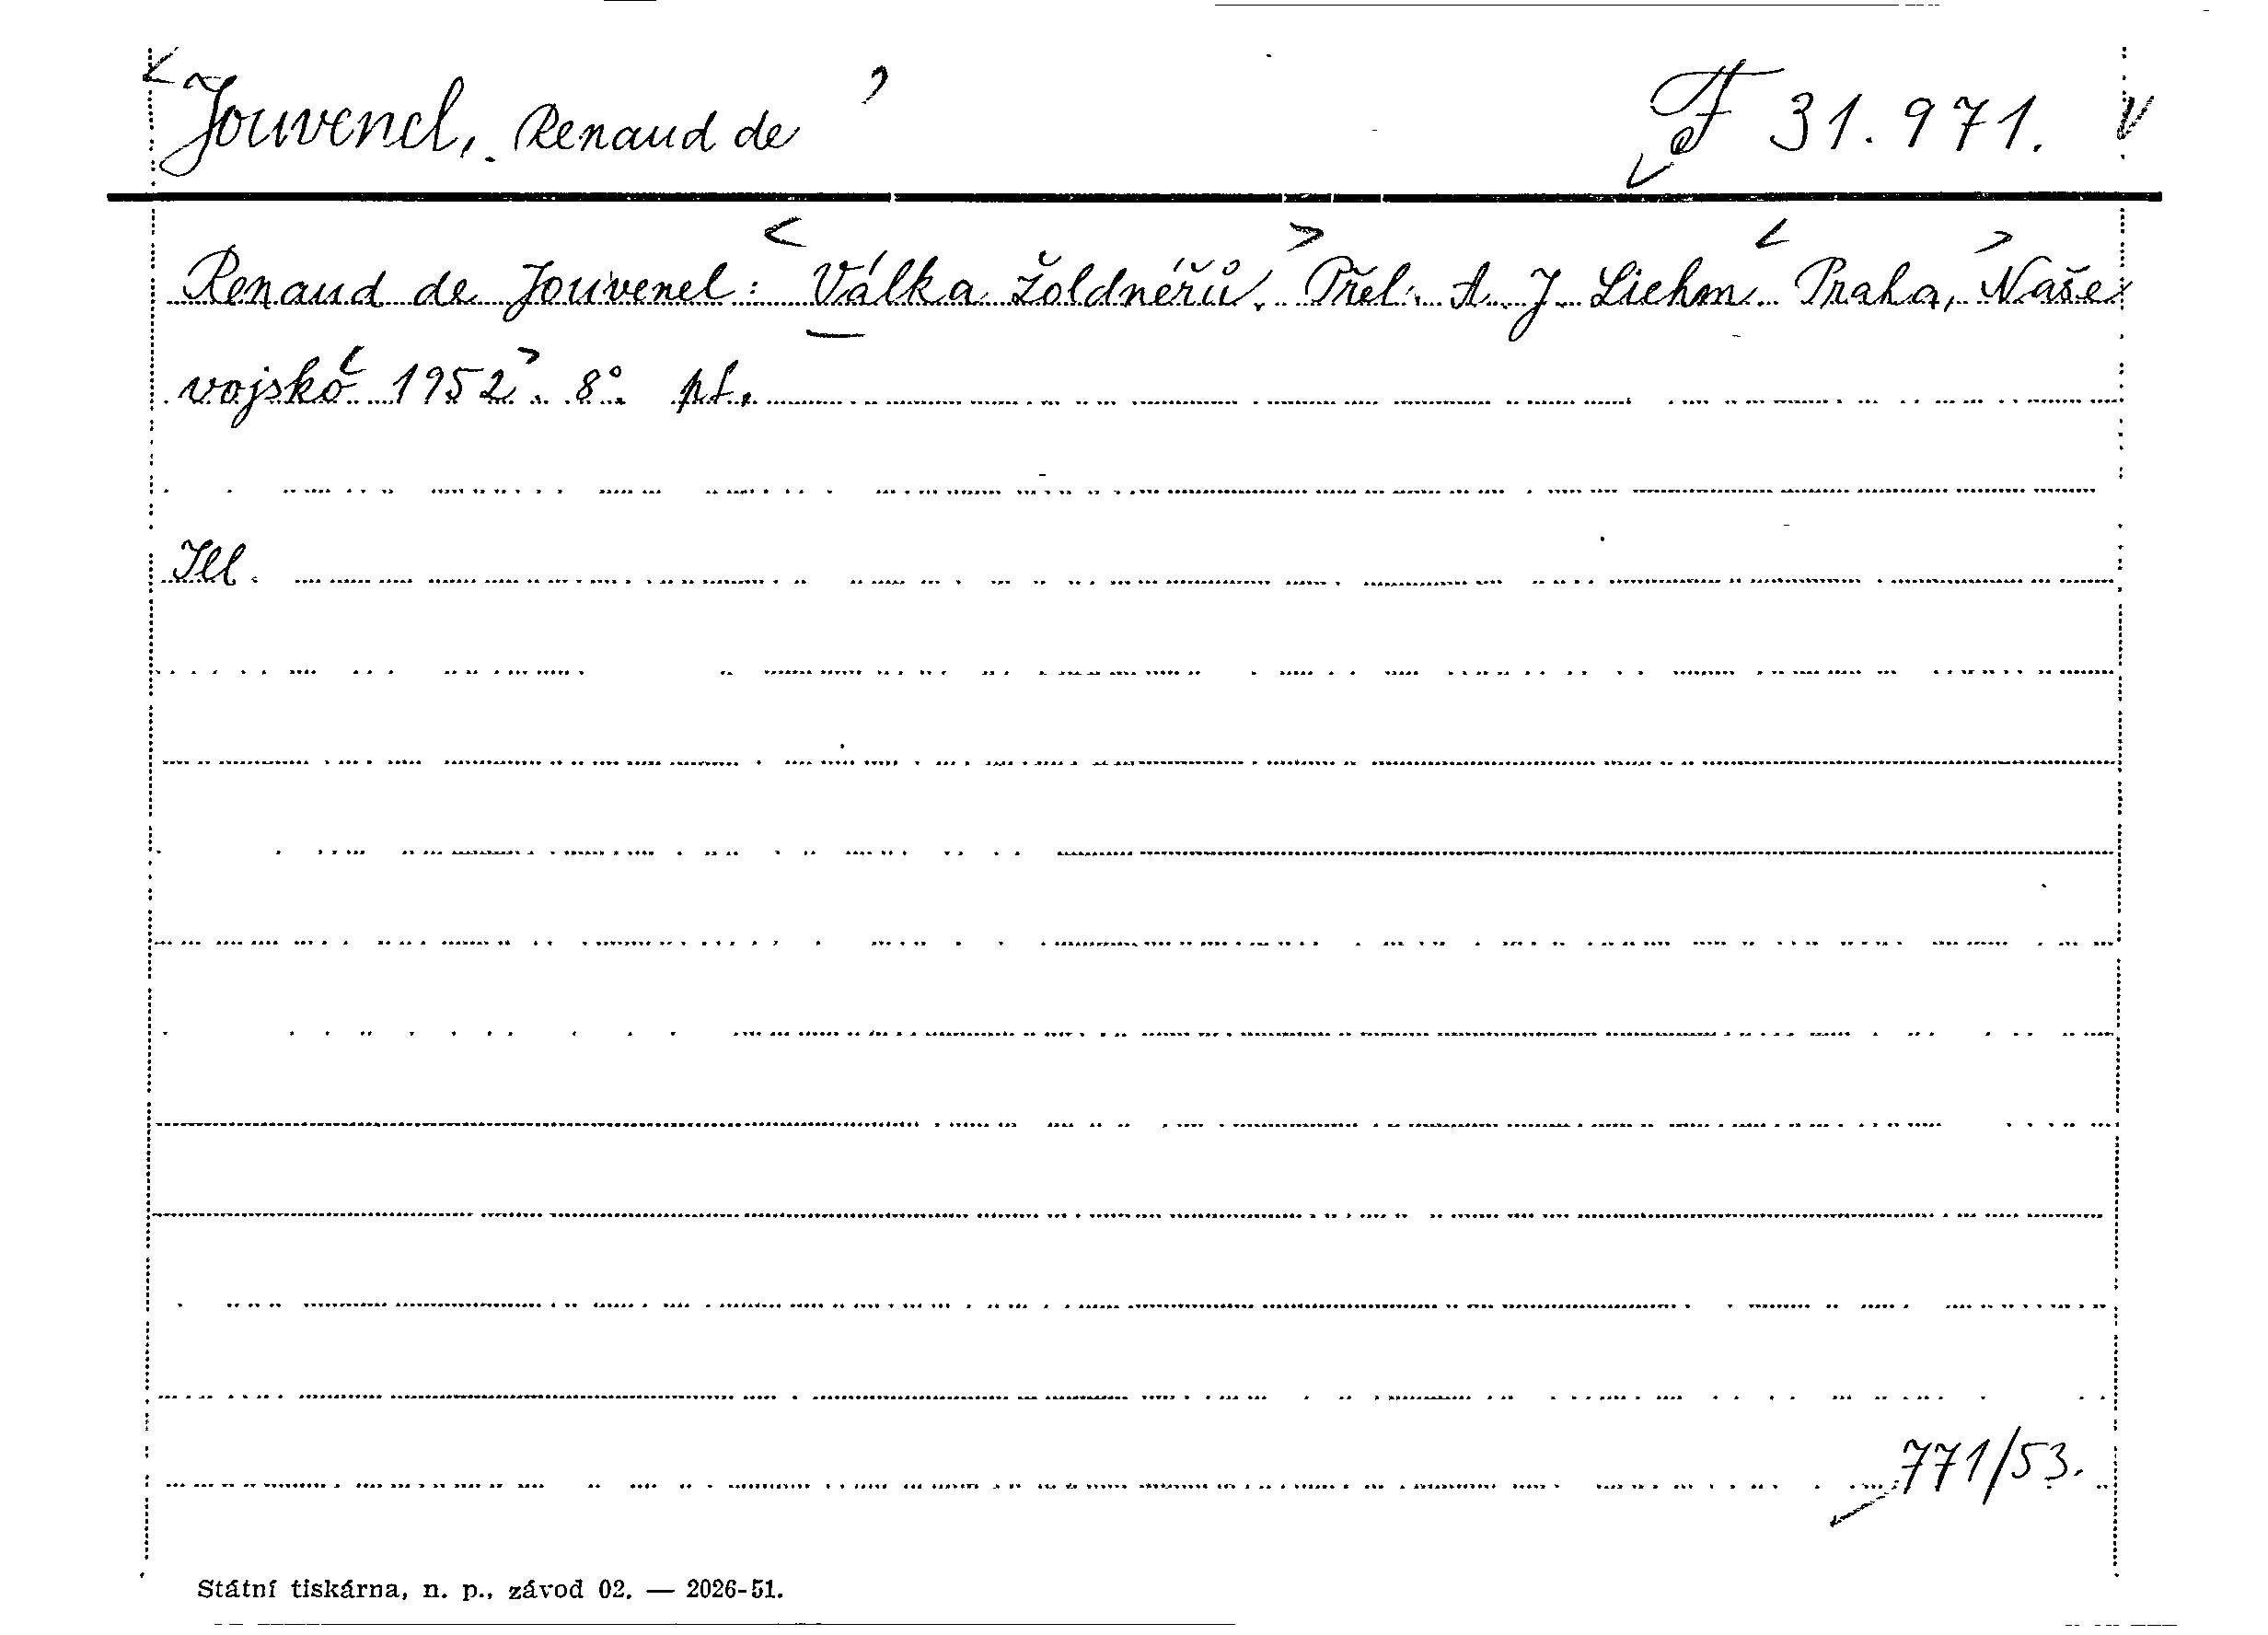 Jouvenel, Renaud de F 31.971.
Renaud de Jouvenel: Válka žoldnéřů. Přel. A. J. Liehm. Praha, Naše
vojsko 1952. 8°. pt.
Ill.
771/53.
Státní tiskárna, n. p., závod 02. — 2026-51.